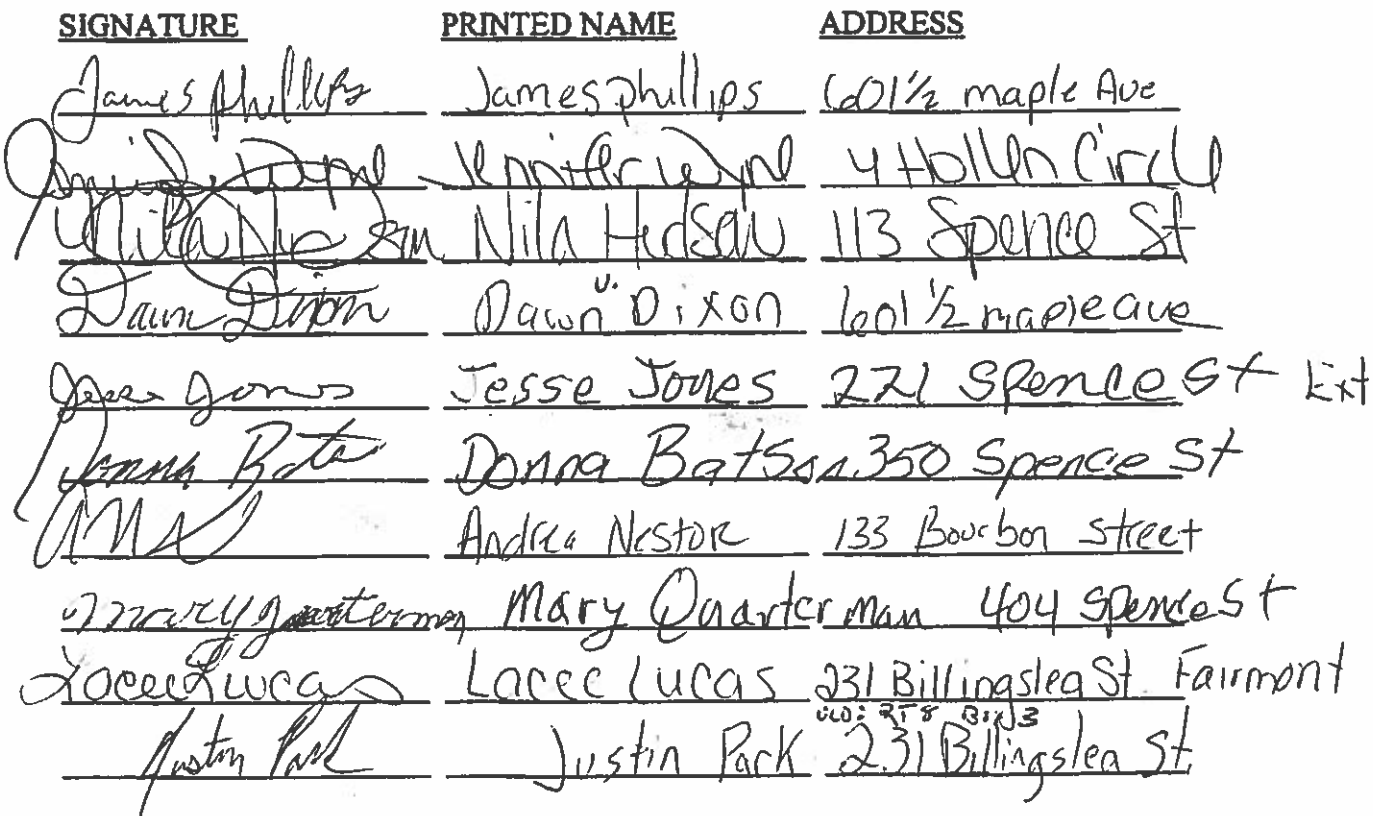 SIGNATURE PRINTED NAME ADDRESS
James Phillips James phillips 601 1/2 maple Ave
Jennifer Wyne 4 Hollen Circle
Nila Hudson Nila Hudson 113 Spence St
Dawn Dixon Dawn Dixon 601 1/2 maple ave
Jesse Jones Jesse Jones 221 Spence St Ext
Donna Donna Batson 350 Spence St
Andrea Nestor 133 Bourbon Street
Mary Quarterman Mary Quarterman 404 Spence St
Lacee Lucas Lacee Lucas 231 Billingslea St Fairmont
OLD: RT 8 Box 3
Justin Park Justin Park 231 Billingslea St.